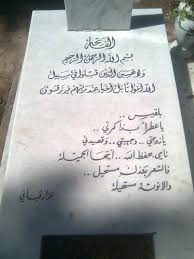 بسم الله الرحمن الرحيم
ولا تحسبن الذين قتلوا في سبيل
الله أمواتا بل أحياء عند ربهم يرزقون
بلقيس ..
يا عطرا بذاكرتي ..
يا زوجتي .. وحبيبتي .. وقصيدتي
نامي بحفظ الله .. أيتها الجميلة
فالشعر بعدك مستحيل ..
والأنوثة مستحيلة
نزار قباني